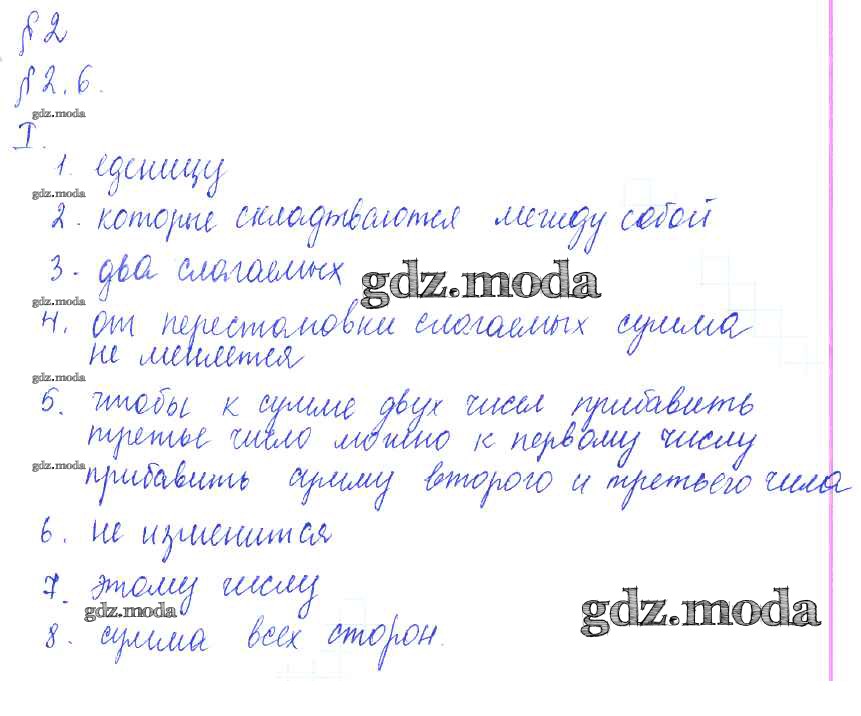 §2
§2.6.
gdz.moda
I.
1. еденицу
gdz.moda
2. которые складтваются между собой
3. два слогаемых
gdz.moda
gdz.moda
4. от перестоновки слогаемых сумма
не меняется
gdz.moda
5. чтобы к сумме двух чисел прибавить
третье число можно к первому числу
gdz.moda
прибавить сумму второго и третьего чила
6. не изменится
7. этому числу
gdz.moda
gdz.moda
8. сумма всех сторон.